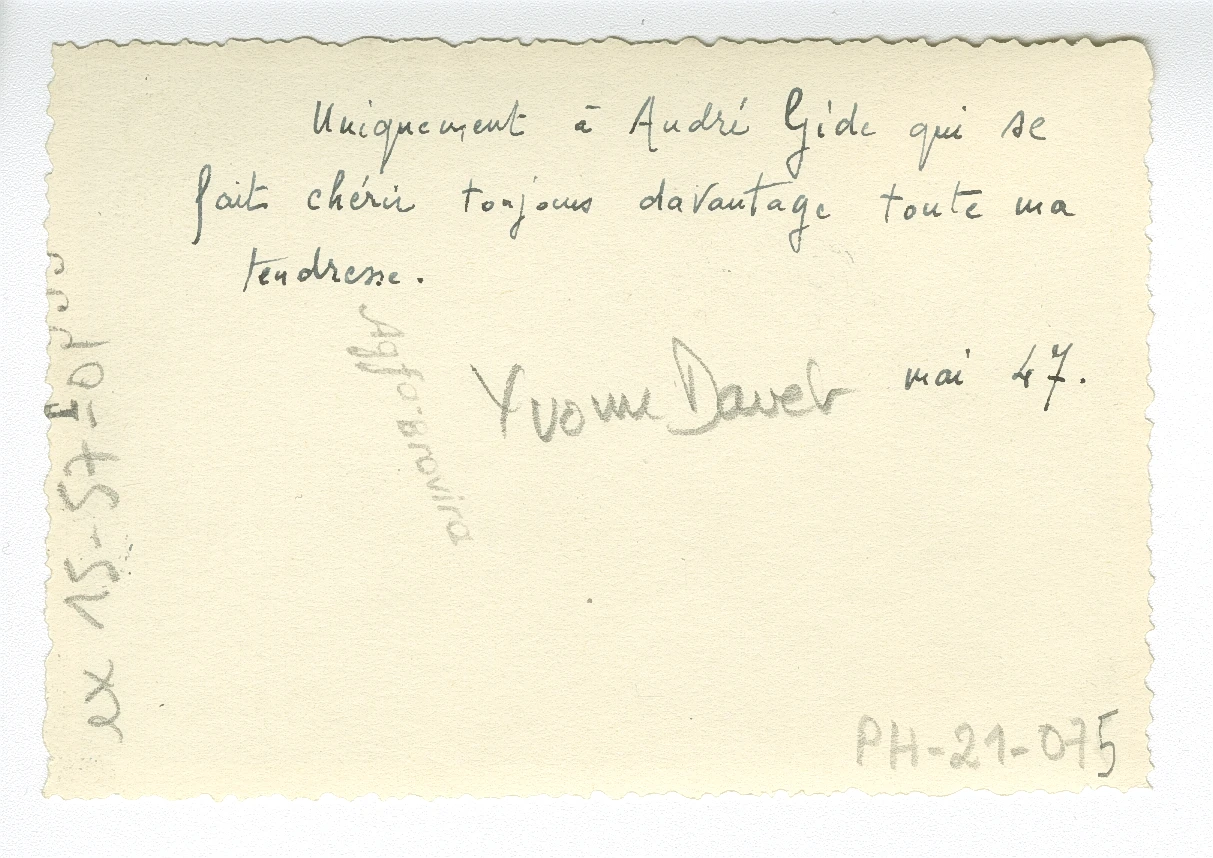 Uniquement à André Gide qui se
fait chérir toujours davantage toute ma
tendresse.
Yvonne Davet mai 47.
Agfa-Brovira
ex 15-57-
PH-21-075